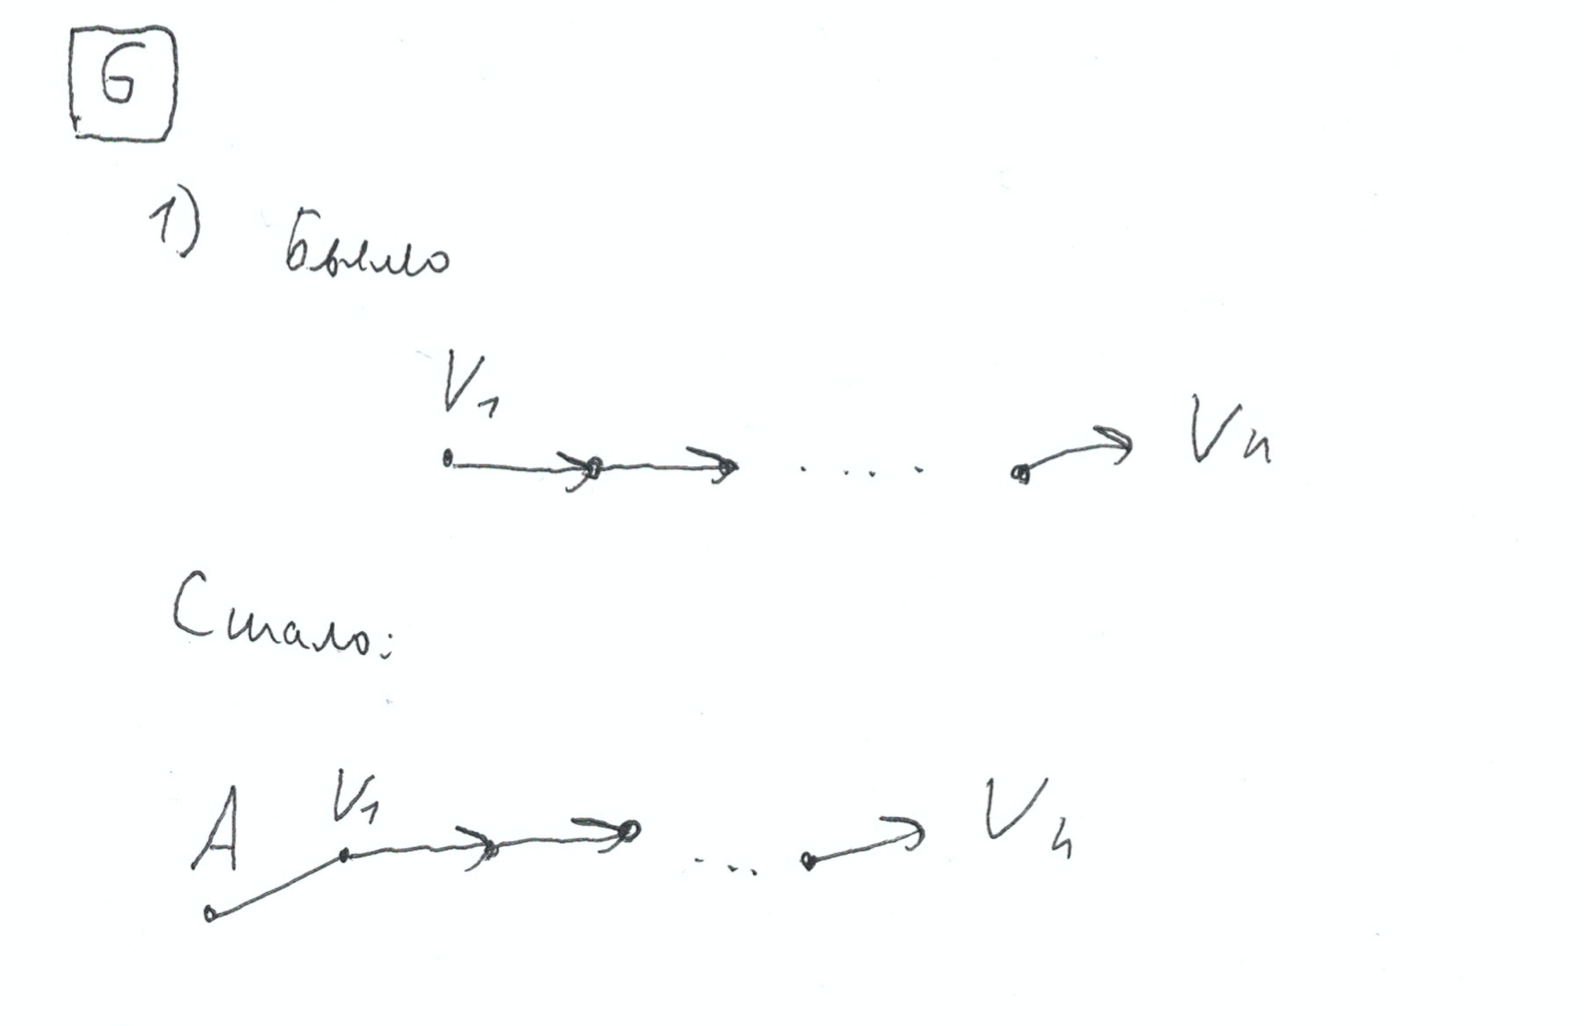 6
1) Было
V₁
.... Vn
Стало:
A V₁ ... Vn